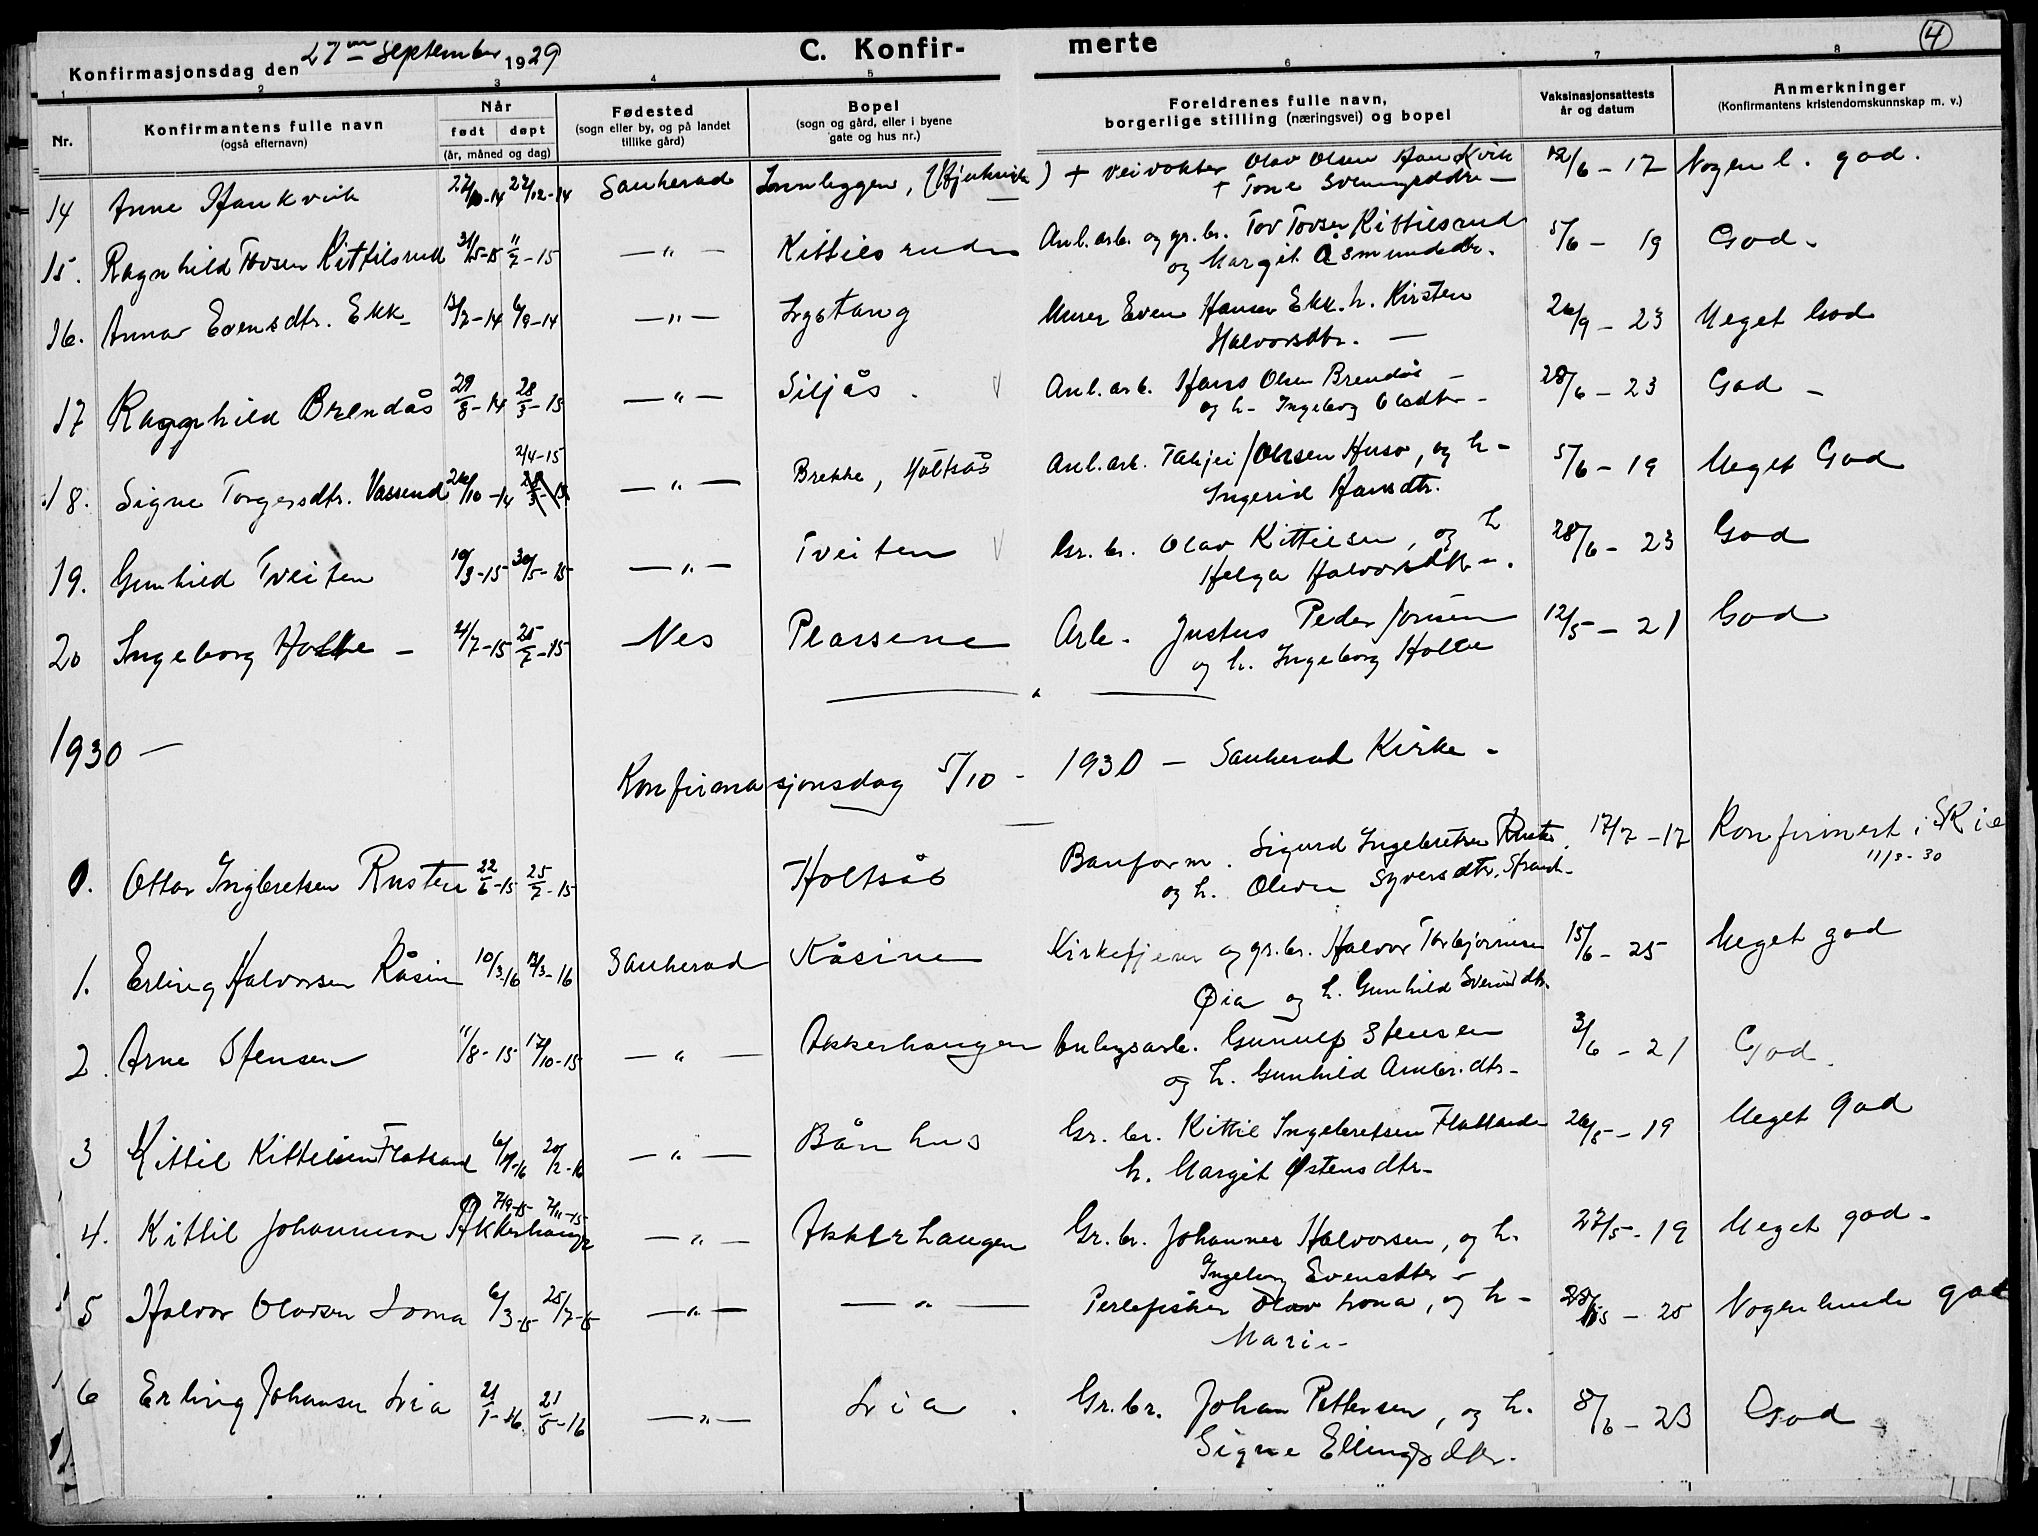 C. Konfirmerte
4
Konfirmasjonsdag den 27de September 1929
1 2 3 4 5 6 7 8
Nr. Konfirmantens fulle navn (også efternavn) Når født døpt (år, måned og dag) Fødested (sogn eller by, og på landet tillike gård) Bopel (sogn og gård, eller i byene gate og hus nr.) Foreldrenes fulle navn, borgerlige stilling (næringsvei) og bopel Vaksinasjonsattests år og datum Anmerkninger (Konfirmantens kristendomskunnskap m. v.)
14 Anne Haukvik 27/10-14 27/12-14 Sauherad + Veivokter Olav Olsen Haukvik 12/6 - 17 Nogenl. god.
+ Tone
15. Ragnhild Tovsen Kittilsrud 31/5-15 11/7-15 — " — Kittilsrud Anl.arb. og gr.br. Tov Tovsen Kittilsrud 5/6 - 19 God.
og Margit Åsmundsdtr.
16. Anna Evensdtr. Ekk 6/9-14 — " — Lystang Murer Even Hansen Ekk. h. Kirsten 26/9 - 23 Meget God
Halvorsdtr. —
17 Ragnhild Brendås 29/8-14 28/3-15 — " — Siljås. Anl.arb. Hans Olsen Brendås 28/6 - 23 God -
og h- Ingeborg Olsdtr -
2/4-15
18. Signe Torgersdtr. Vassend 26/10-14 — " — Brekke, Holtsås Anl.arb. Olsen Huso, og h- 5/6 - 19 Meget God
Ingerid Hansdtr.
19. Gunhild Tveiten 10/3-15 30/5-15 — " — Tveiten Gr.br. Olav Kittilsen, og h 28/6 - 23 God
Helga Halvorsdtr -.
20 Ingeborg Holte - 4/7-15 25/7-15 Nes Plassene Arb. Justus Peder Jonsen 12/5 - 21 God
og h. Ingeborg Holte
1930 —
Konfirmasjonsdag 5/10 - 1930 — Sauherad Kirke -
0. Ottar Ingbretsen Rusten 22/6-15 25/7-15 Holtsås Banform. Sigurd Ingebretsen Rusten. 17/7 - 17 Konfirmert i Skie
og h. Oleva Syversdtr. Strand- 11/3-30
1. Erling Halvorsen Råsin 10/3-16 Sauherad Råsine Kirketjener og gr.br. Halvor Torbjørnsen 15/6 - 25 Meget god
Øia og h. Gunhild
2. Arne Stensen 11/8-15 17/10-15 — " — Akkerhaugen Anlegsarb. Gunulf Stensen 3/6 - 21 God.
og h. Gunhild Ambr.dtr-
3 Kittil Kittilsen Flatland 20/2-16 — " — Bånhus Gr.br. Kittil Ingebretsen Flatland 26/5 - 19 Meget god
h. Margit Østensdtr-
7/9-15 7/11-15
4. Kittil Johannesen Akkerhaugen — " — Akkerhaugen Gr.br. Johannes Halvorsen, og h. 27/5 - 19 Meget god -
Ingeborg Evensdtr -
5 Halvor Olavsen Lona 6/3-15 25/7-15 — " — — " — Perlefisker Olav Lona, og h - 25 Nogenlunde god
Marie-
6 Erling Johansen Lia 21/1-16 21/5-16 — " — Lia. Gr.br. Johan Pettersen, og h. 8/6 - 23 God
Signe Ellingsdtr.